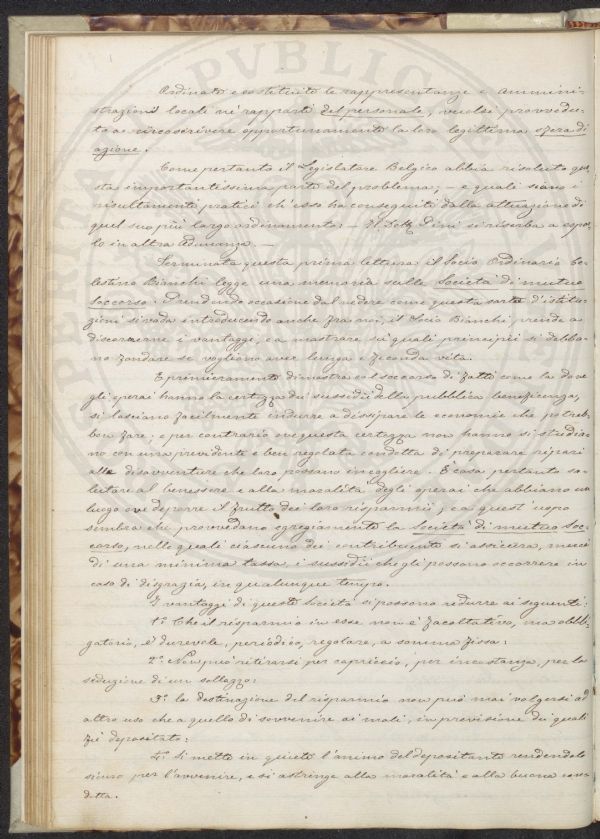 Ordinate e costituite le rappresentanze e ammini-
strazioni locali nè rapporti del personale, vuolsi provvedu-
to a circoscrivere opportunamente la loro legittima sfera di
azione.
Come pertanto il Legislatore Belgico abbia risoluto que-
sta importantissima parte del problema; — e quali siano i
risultamenti pratici ch'esso ha conseguiti dalla attuazione di
quel suo più largo ordinamento: — Il Dott. Dini si riserba a espor-
lo in altra Adunanza. —
Terminata questa prima lettura il Socio Ordinario Ce-
lestino Bianchi legge una memoria sulle Società di mutuo
soccorso. Prendendo occasione dal vedere come questa sorta d'istitu-
zioni si vada introducendo anche fra noi, il Socio Bianchi prende a
discorrerne i vantaggi, e a mostrare su quali principii si debba-
no fondare se vogliono aver lunga e feconda vita.
E primieramente dimostra col soccorso di fatti come la dove
gli operai hanno la certezza dei sussidii della pubblica beneficenza,
si lasciano facilmente indurre a dissipare le economie che potreb-
ber fare; e per contrario ove questa certezza non hanno si studia-
no con una previdente e ben regolata condotta di preparare ripari
alle disavventure che loro possano incogliere. È cosa pertanto sa-
lutare al benessere e alla moralità degli operai che abbiano un
luogo ove deporre il frutto dei loro risparmii, e a quest'uopo
sembra che provvedano egregiamente la Società di mutuo soc-
corso, nelle quali ciascuno dei contribuenti si assicura, mercè
di una minima tassa, i sussidii che gli possono occorrere in
caso di disgrazia, in qualunque tempo.
I vantaggi di queste Società si possono redurre ai seguenti:
1.° Che il risparmio in esse non è facoltativo, ma obbli-
gatorio, è durevole, periodico, regolare, a somma fissa:
2.° Non può ritirarsi per capriccio, per incostanza, per la
seduzione di un sollazzo:
3.° la destinazione del risparmio non può mai volgersi ad
altro uso che a quello di sovvenire ai mali, in previsione dei quali
fu depositato:
4.° Si mette in quiete l'animo del depositante rendendolo
sicuro per l'avvenire, e si astringe alla moralità e alla buona con-
dotta.